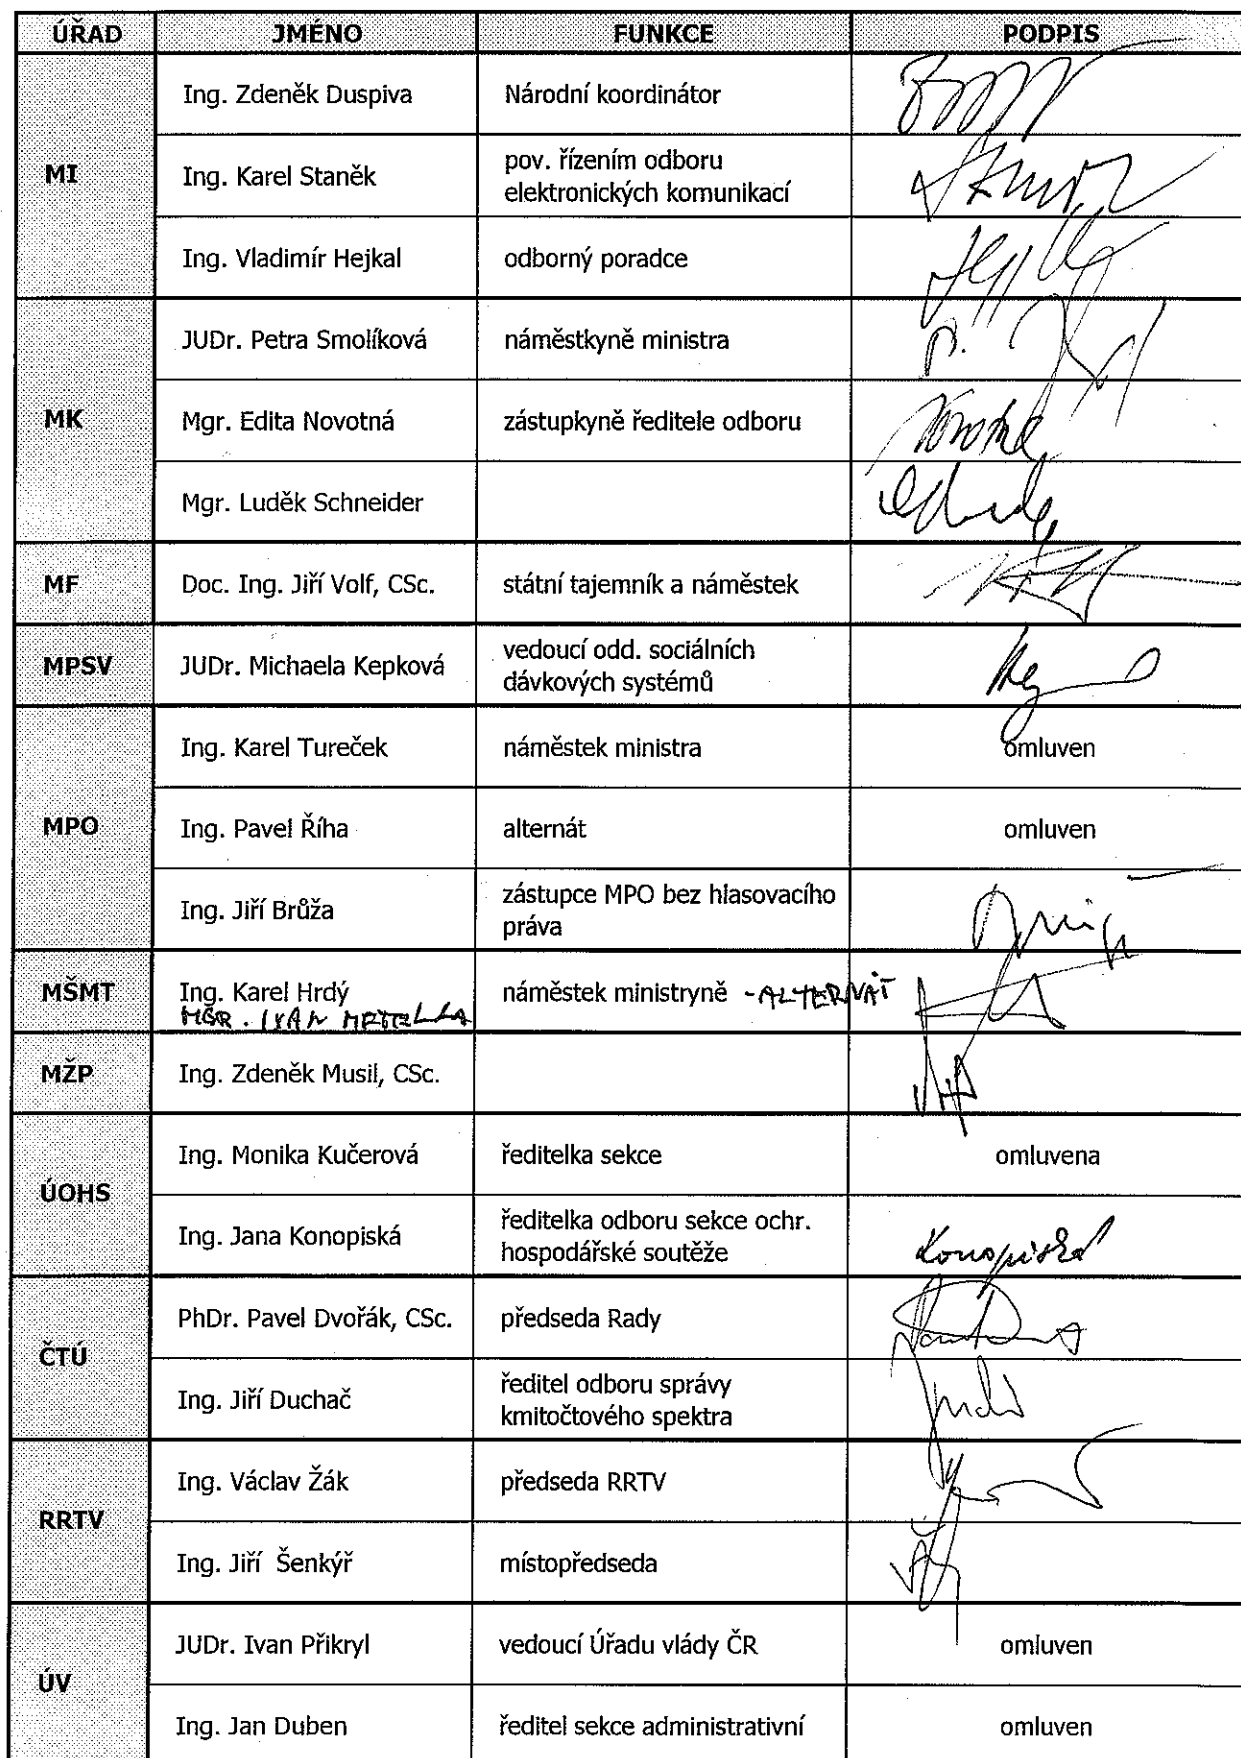 ÚŘAD JMÉNO FUNKCE PODPIS
MI
Ing. Zdeněk Duspiva Národní koordinátor
Ing. Karel Staněk pov. řízením odboru
elektronických komunikací
Ing. Vladimír Hejkal odborný poradce
MK
JUDr. Petra Smolíková náměstkyně ministra
Mgr. Edita Novotná zástupkyně ředitele odboru
Mgr. Luděk Schneider
MF Doc. Ing. Jiří Volf, CSc. státní tajemník a náměstek
MPSV JUDr. Michaela Kepková vedoucí odd. sociálních
dávkových systémů
MPO
Ing. Karel Tureček náměstek ministra omluven
Ing. Pavel Říha alternát omluven
Ing. Jiří Brůža zástupce MPO bez hlasovacího
práva
MŠMT Ing. Karel Hrdý náměstek ministryně - ALTERNÁT
MGR. IVAN
MŽP Ing. Zdeněk Musil, CSc.
ÚOHS
Ing. Monika Kučerová ředitelka sekce omluvena
Ing. Jana Konopiská ředitelka odboru sekce ochr.
hospodářské soutěže Konopiská
ČTÚ
PhDr. Pavel Dvořák, CSc. předseda Rady
Ing. Jiří Duchač ředitel odboru správy
kmitočtového spektra
RRTV
Ing. Václav Žák předseda RRTV
Ing. Jiří Šenkýř místopředseda
ÚV
JUDr. Ivan Přikryl vedoucí Úřadu vlády ČR omluven
Ing. Jan Duben ředitel sekce administrativní omluven